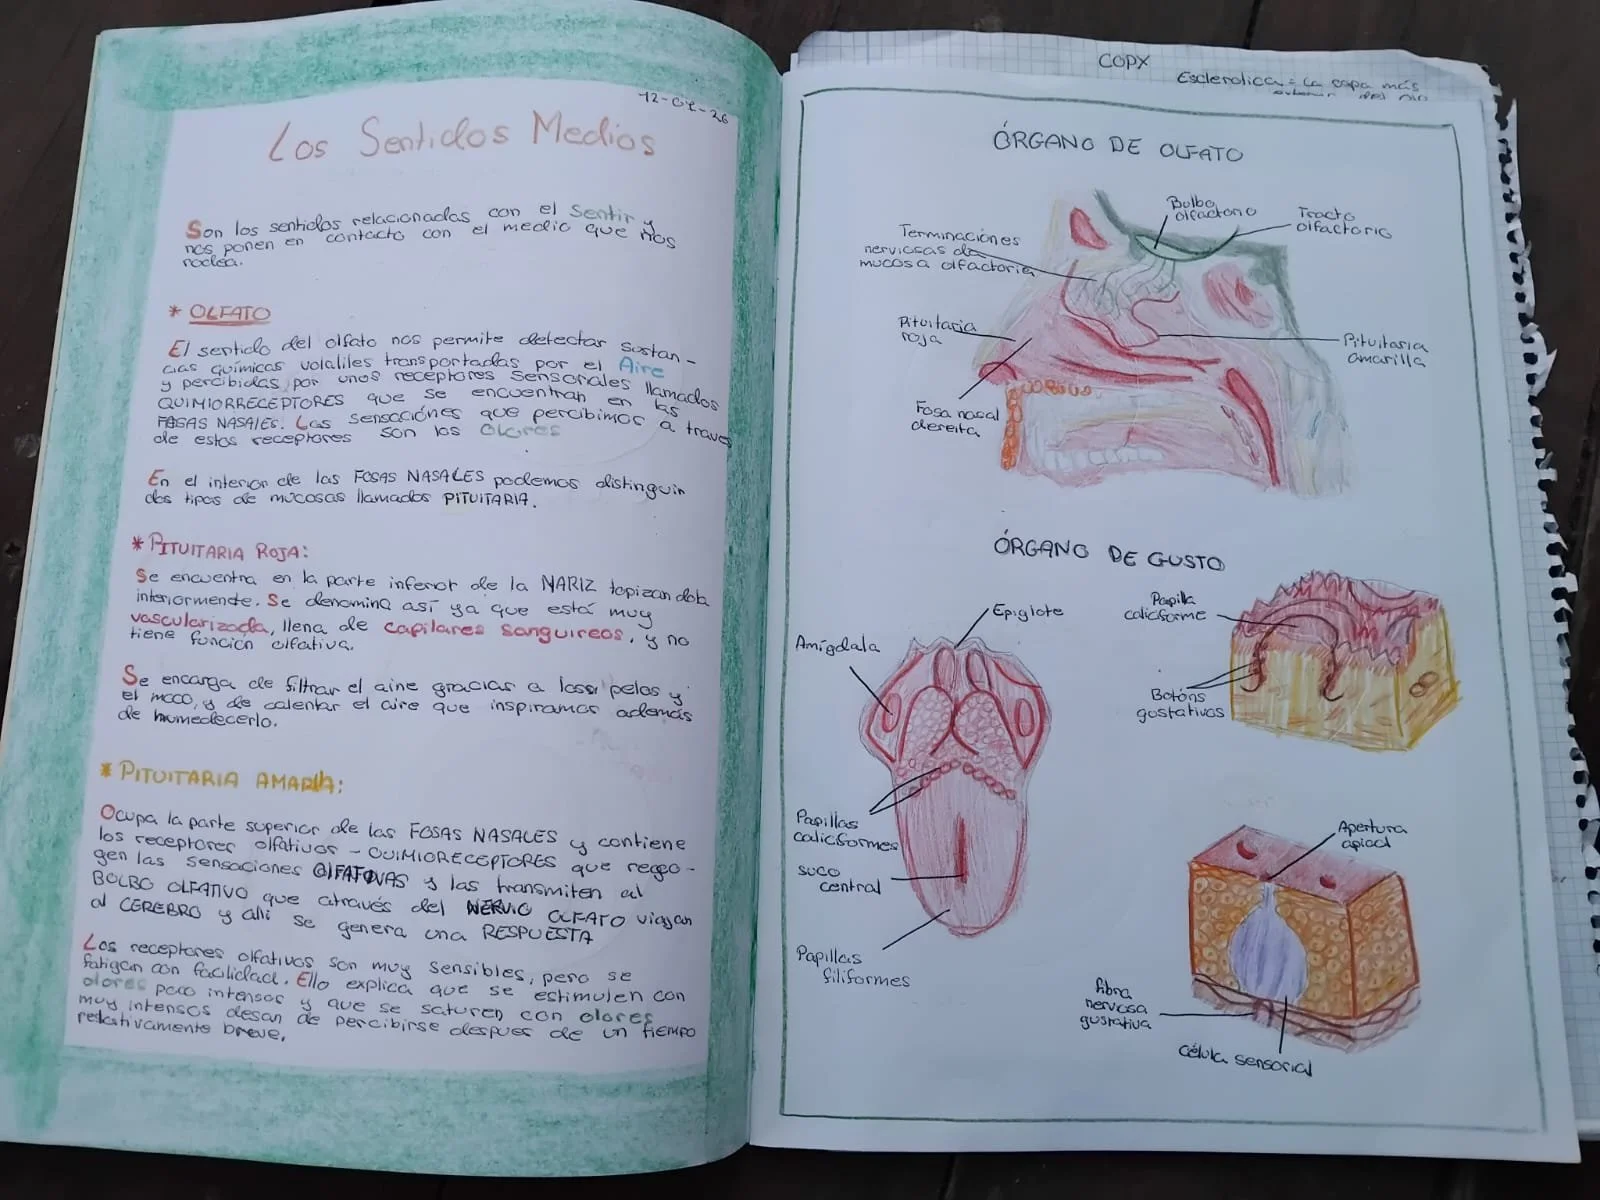 Los Sentidos Medios
Son los sentidos relacionados con el Sentir y
nos ponen en contacto con el medio que nos
rodea.
* OLFATO
El sentido del olfato nos permite detectar sustan -
cias químicas volatiles transportadas por el Aire
y percibidas por unos receptores sensoriales llamados
QUIMIORRECEPTORES que se encuentran en las
FOSAS NASALES. Las sensaciónes que percibimos a traves
de estos receptores son los Olores
En el interior de las FOSAS NASALES podemos distinguir
dos tipos de mucosas llamados PITUITARIA.
* PITUITARIA ROJA:
Se encuentra en la parte inferior de la NARIZ
interiormente. Se denomina así ya que está muy
vascularizada, llena de capilares sanguíreos, y no
tiene función olfativa.
Se encarga de filtrar el aire gracias a pelos y
el moco, y de calentar el aire que inspiramos además
de humedecerlo.
* PITUITARIA
Ocupa la parte superior de las FOSAS NASALES y contiene
los receptores olfativos - QUIMIORECEPTORES que recgo -
gen las sensaciones y las transmiten al
BOLBO OLFATIVO que através del NERVIO OLFATO viajan
al CEREBRO y alli se genera una RESPUESTA
Los receptores olfativos son muy sensibles, pero se
fatigan con facilidad. Ello explica que se estimulen con
olores poco intensos y que se saturen con olores
muy intensos de percibirse despues de un tiempo
relativamente breve.
COPX
Esclerotica = La capa más
ÓRGANO DE OLFATO
Bulbo
olfactorio
Tracto
olfactorio
Terminaciónes
nerviosas de
mucosa olfactoria
Pituitaria
roja
Pituitaria
amarilla
Fosa nasal
ÓRGANO DE GUSTO
Epiglote
Amígdala
Papilla
caliciforme
Botóns
gustativos
Papillas
caliciformes
suco
central
Papillas
filiformes
Apertura
apical
fibra
nerviosa
gustativa
Célula sensorial